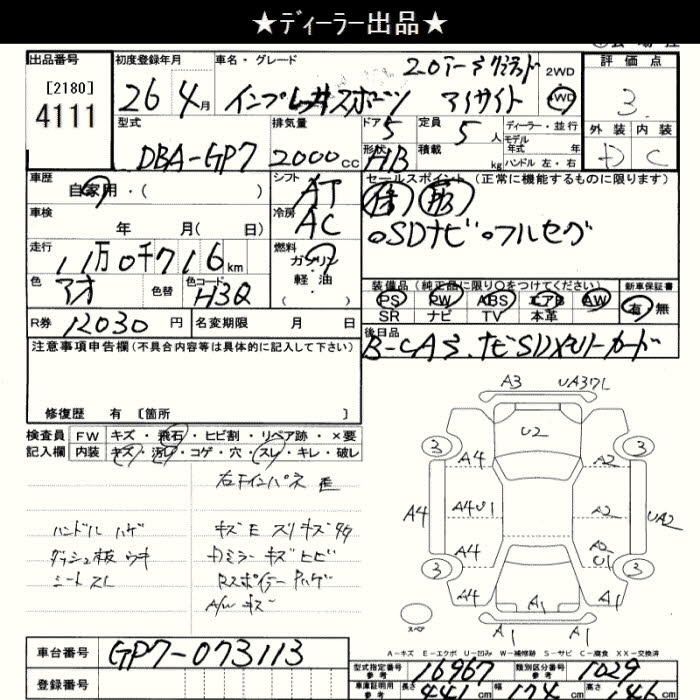 ★ディーラー出品★
出品番号 初度登録年月 車名・グレード 2WD 評価点
[2180] 26年 4月 インプレッサスポーツ アイサイト 4WD 3
4111
型式 排気量 ドア 定員 ディーラー・並行 外装 内装
DBA-GP7 2000cc 5 5人 モデル年式 年 D C
形状 HB 積載 kg ハンドル 左・右
車歴 自家用・( ) シフト AT セールスポイント (正常に機能するものに限ります)
車検 年 月( 日) 冷房 AC
SDナビ フルセグ
走行 11万0千716km 燃料 ガソリン・軽油・( )
色 アオ 色替 色コード H3Q
装備品 (純正品に限り○をつけてください) 新車保証書
PS PW ABS エアB AW 有・無
SR ナビ TV 本革
R券 12030円 名変期限 月 日 後日品
注意事項申告欄(不具合内容等は具体的に記入して下さい)
修復歴 有 [箇所 ]
検査員 FW キズ・飛石・ヒビ割・リペア跡・×要
記入欄 内装 キズ・汚レ・コゲ・穴・スレ・キレ・破レ
ハンドル ハゲ
シート スレ
A/W キズ
A3 UA37L
U2
3 3
A4 A2
A4 A4U1 A2 UA2
A4 A2 U1
3 3
A1 A1
A1 A1
スペア
A－キズ E－エクボ U－凹み W－補修跡 S－サビ C－腐食 XX－交換済
車台番号 GP7-073113
登録番号
型式指定番号 参考 16967 類別区分番号 参考 1029
車庫証明用 参考 長さ 441cm 幅 174cm 高さ 146cm